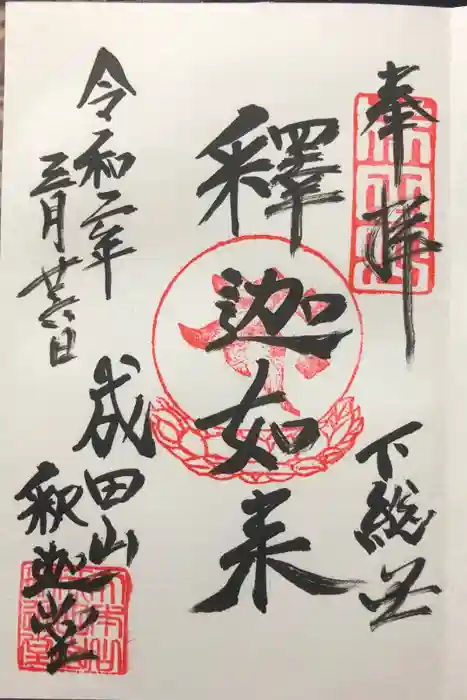 奉拝
下総
釋迦如来
令和二年
三月廿六日
成田山
釈迦堂